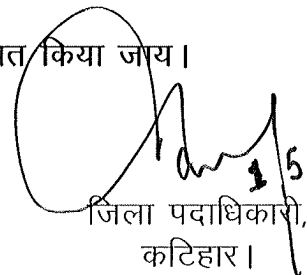 त किया जाय।
15
जिला पदाधिकारी,
कटिहार।